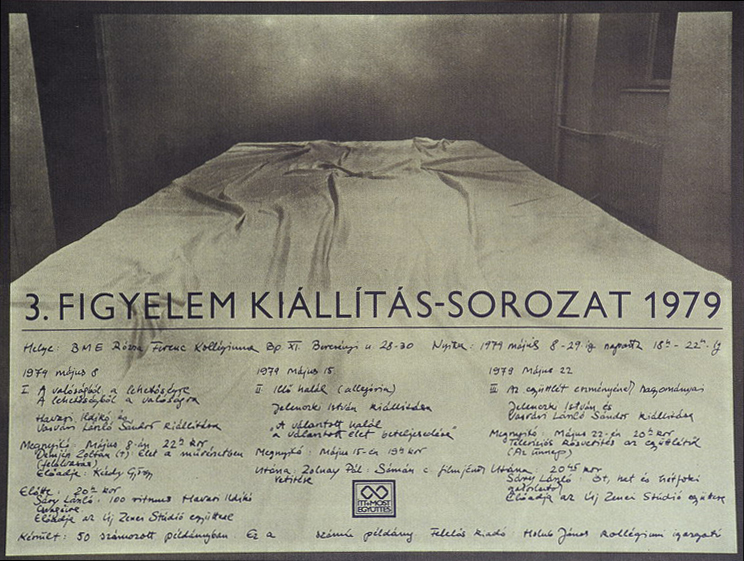 3. FIGYELEM KIÁLLÍTÁS-SOROZAT 1979
Helye: BME Rózsa Ferenc Kollégiuma Bp. XI. Bercsényi u. 28-30 Nyitva: 1979 május 8-29-ig naponta 18ʰ-22ʰ-ig
1979 május 8
I A valóságból a lehetőségbe
A lehetőségből a valóságba
Havasi Ildikó és
Vasvári László Sándor kiállítása
Megnyitó: Május 8-án 22ʰ kor
Zoltán (†) Élet a művészetben
(felolvasás)
Előadja: György
Előtte 20ʰ kor
Sáry László: 100 ritmus Havasi Ildikó
Előadja az Új Zenei Stúdió együttese
1979 Május 15.
II Illő halál (allegória)
Jelenczki István kiállítása
"A választott halál
a választott élet beteljesedése"
Megnyitó: Május 15-én 19ʰ kor
Utána: Zolnay Pál: Sámán c. filmjének
vetítése
ITT ÉS MOST
EGYÜTTES
1979 Május 22
III Az együttlét eseményének hagyományai
Jelenczki István és
Vasvári László Sándor kiállítása
Megnyitó: Május 22-én 20ʰ kor
Televíziós közvetítés az együttlétről
(Az ünnep)
Utána: 20ʰ45 kor
Sáry László: Öt, hat és hétfokú
Előadja az Új Zenei Stúdió együttese
Készült: 50 számozott példányban. Ez a számú példány Felelős Kiadó: Holub János Kollégium igazgató